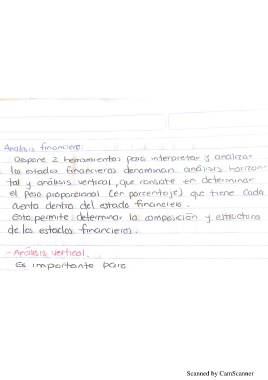 Análisis financiero:
Dispone 2 herramientas para interpretar y analizar
los estados financieros denominan análisis horizon-
tal y análisis vertical, que consiste en determinar
el peso proporcional (en porcentaje) que tiene cada
cuenta dentro del estado financiero.
Esto permite determinar la composición y estructura
de los estados financieros.
- Análisis vertical.
Es importante para
Scanned by CamScanner